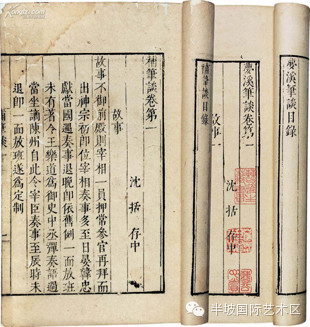 夢溪筆談目錄
夢溪筆談卷第一
沈 括 存中
故事一
補筆談目錄
補筆談卷第一
沈 括 存中
故事
故事不御前殿則宰相一員押常參官再拜而
出神宗初即位宰相奏事多至日晏韓忠
獻當國遇奏事退晚即依舊例一面放班
未有著令王樂道為御史中丞彈奏語過
當坐謫陳州自此令宰臣奏事至辰時未
退即一面放班遂為定制
半坡国际艺术区